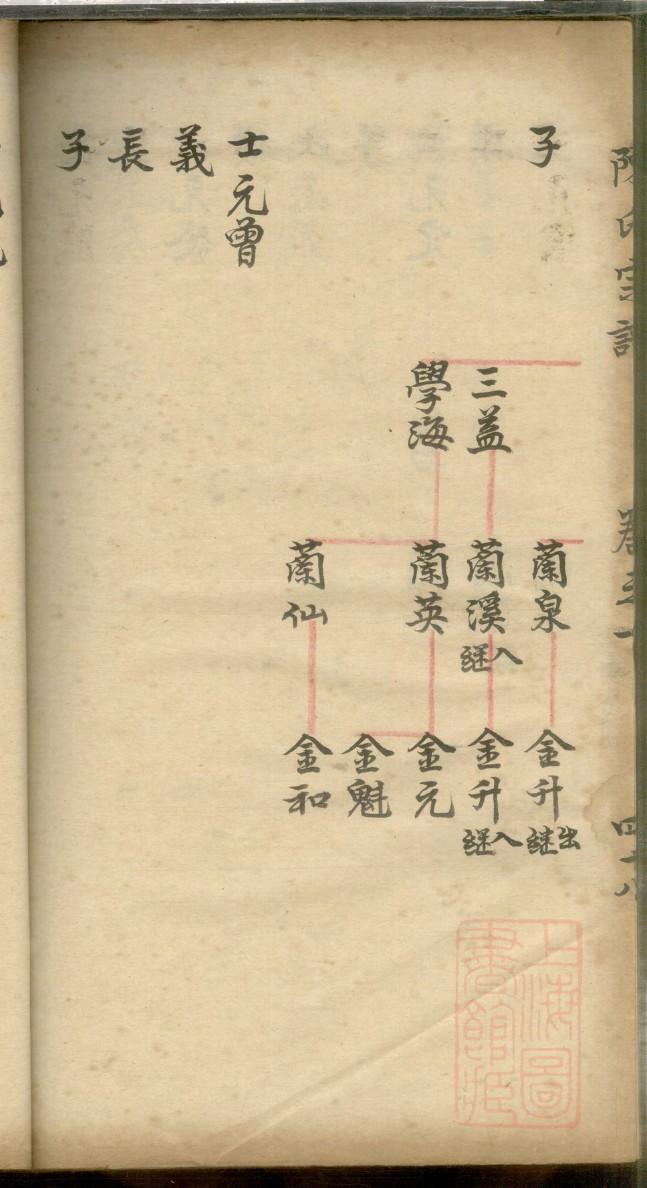 陳氏宗譜 卷三十 四十八
子
蘭泉
金升出繼
三益
蘭溪入繼
金升入繼
學海
蘭英
金元
金魁
蘭仙
金和
士元曾
義
長
子
上海圖書館藏